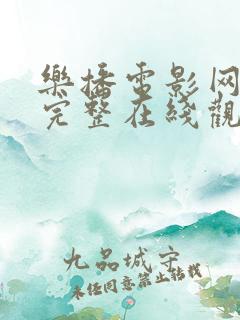 樂播電影网
完整在綫觀
九品城守
未经同意禁止转载